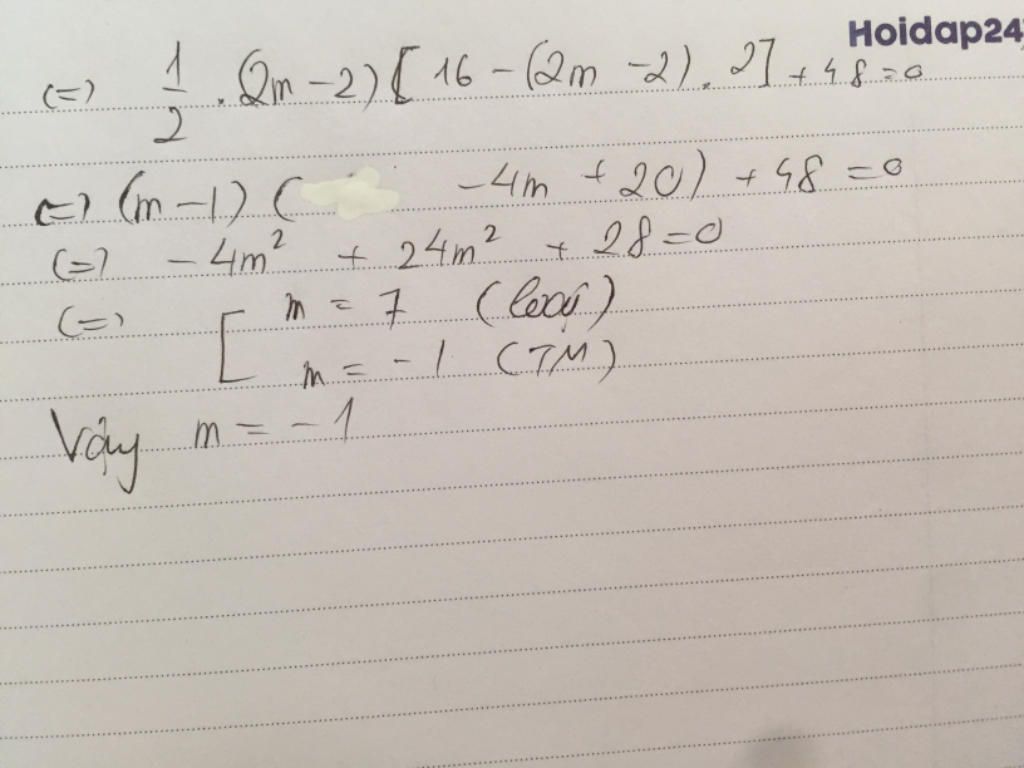 Hoidap24
(=) 1/2 . (2m - 2) [ 16 - (2m - 2) . 2] + 48 = 0
(=) (m - 1) ( - 4m + 20) + 48 = 0
(=) - 4m² + 24m² + 28 = 0
(=) [ m = 7 (loại)
m = - 1 (TM)
Vậy m = - 1